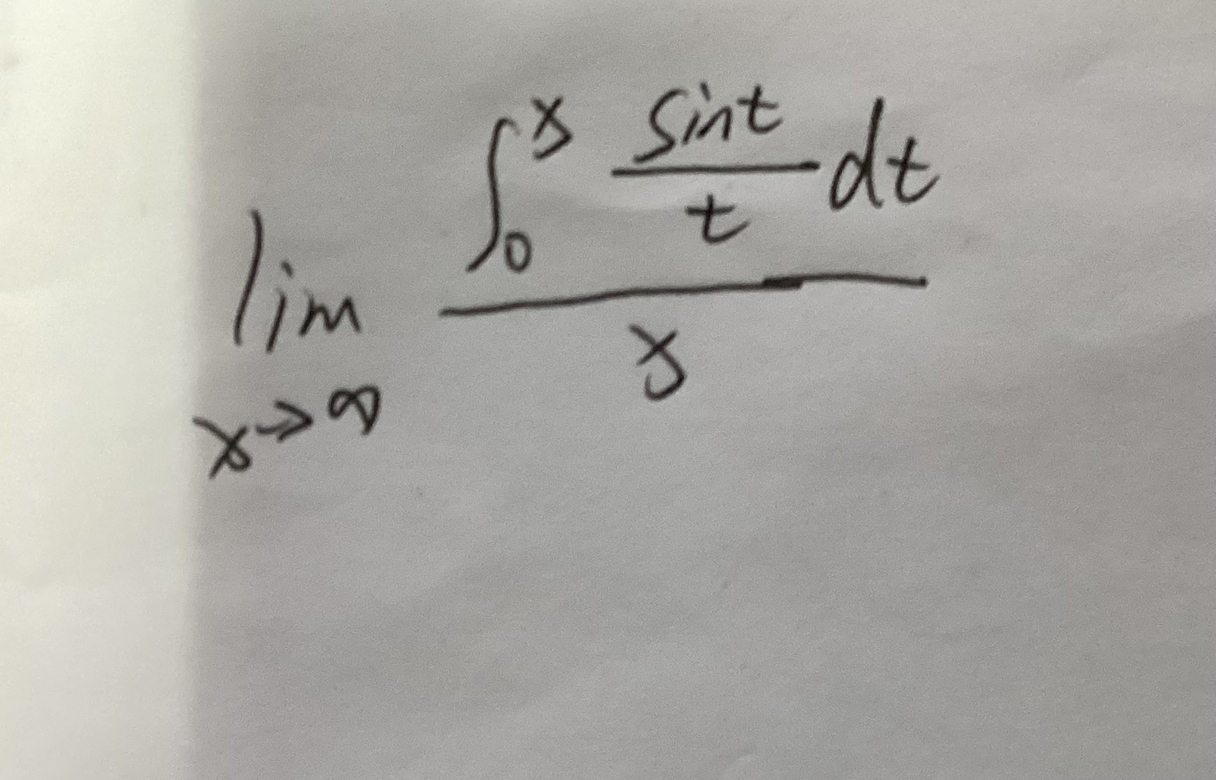 $\lim_{x \to \infty} \frac{\int_0^x \frac{\sin t}{t} dt}{x}$